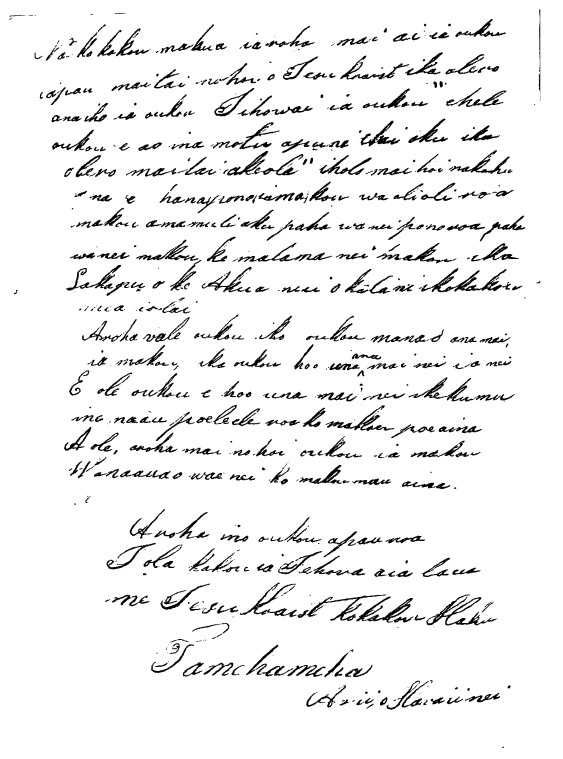 Na ko kakou makua i aroha mai ai ia oukou
apau maitai no hoi o Iesu Kraist i ka olero
ana iho ia oukou Iihowai ia oukou "e hele
oukou e ao ina motu apuni i ka
olero maitai akeola" ihola mai hoi nakahu
na e hana pono ia makou wa olioli roa
makou amamuli aku paha wanei pono roa paha
wanei makou, ke malama nei makou ika
La kapu o ke Akua nui o ka lani i kokakou
mea e ola i
Aroha vale oukou iko oukou manao ana mai,
ia makou, ika oukou hoo una ana mai nei ia nei
E ole oukou e hoo una mai nei ike kumu
ino naau poelele roa ko makou poe aina
Aole, aroha mai no hoi oukou ia makou
Wanaauao wae nei ko makou mau aina.
Aroha ino oukou apau roa
I ola kakou ia Iehova aia laua
me Iesu Kraist kokakou Haku
Tamehameha
Arii, o Havaii nei